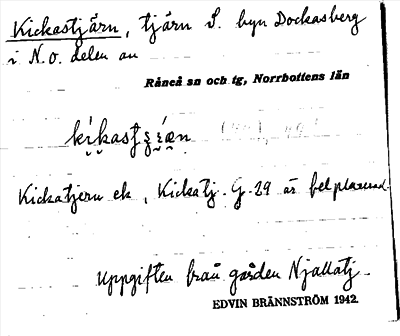 Kickastjärn, tjärn S. byn Dockasberg
i N.O. delen av
Råneå sn och tg, Norrbottens län
Kickatjern ek, Kickatj. G-29 är felplacerad
Uppgiften från gården Njallatj
EDVIN BRÄNNSTRÖM 1942.